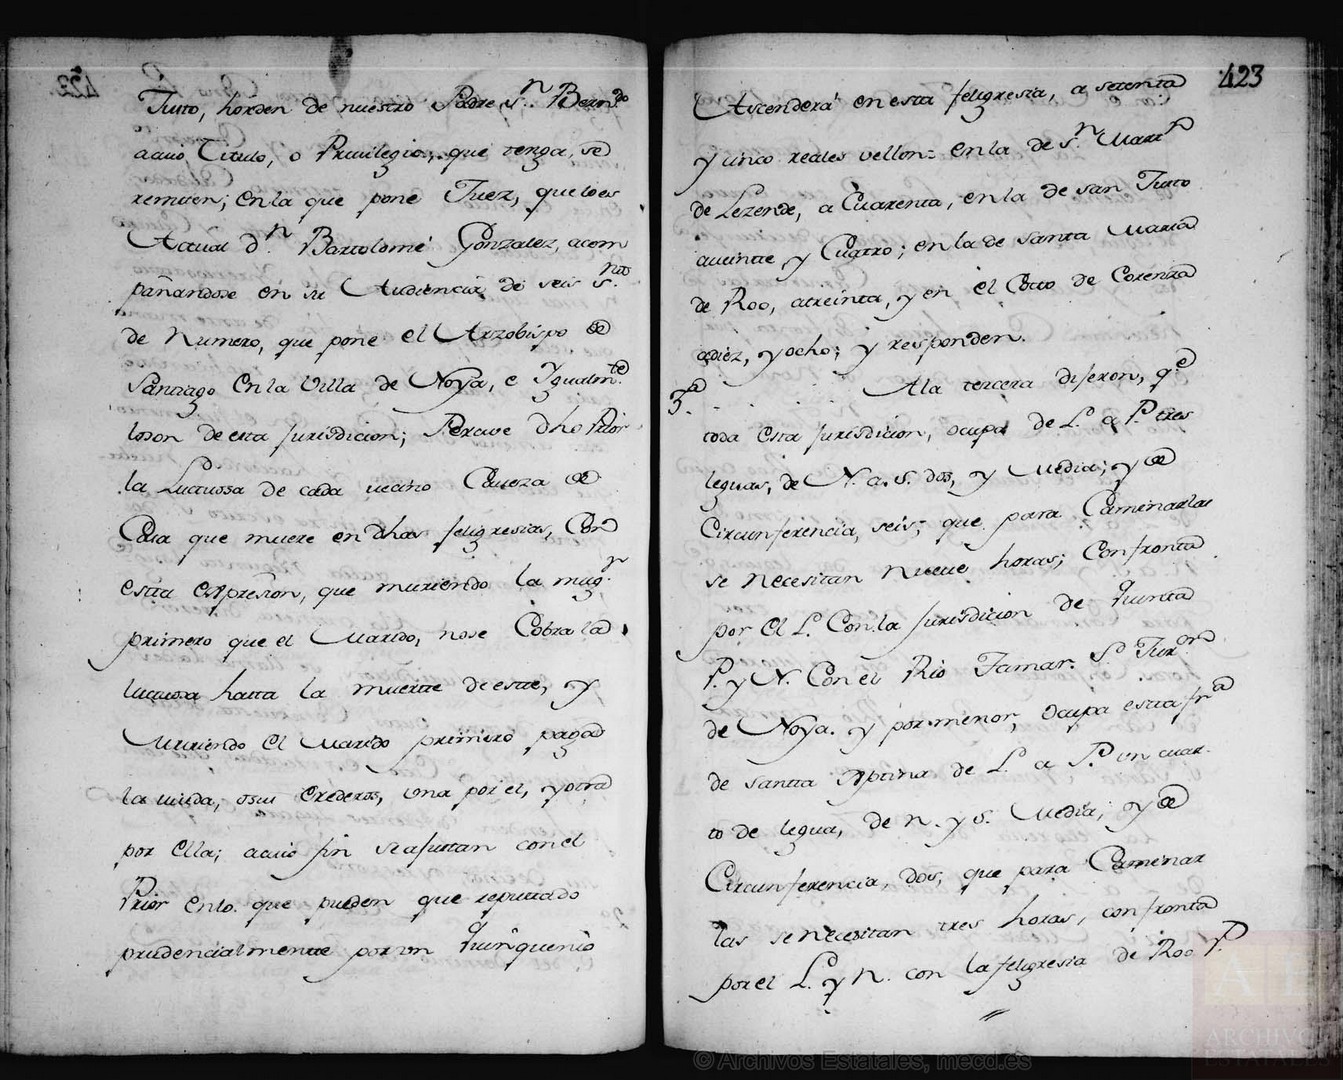 Justo, horden de nuestro Padre Sn. Berndo
acuio Titulo, o Privilegio, que tenga, se
remiten; en la que pone Juez, que lo es
Actual Dn. Bartolome Gonzalez, acom
pañandose en su Audiencia de seis Snos.
de Numero, que pone el Arzobispo de
Santiago en la Villa de Noya, e Ygualmte.
loson de esta Jurisdicion; Percive dho Prior
la Luctuosa de cada vecino Caveza de
Casa que muere en dhas feligresias, Con
esta expresion, que muriendo la mugr
primero que el Marido, nose Cobra la
luctuosa hasta la muerte de este, y
Muriendo el Marido primero paga
la viuda, osus erederos, una por el, yotra
por ella; acuio fin se ajustan con el
Prior en lo que pueden que reputado
prudencialmente por un quinquenio
423
Ascenderá en esta feligresia, a setenta
y cinco reales vellon= en la de Sn. Martn
de Lezende, a Cuarenta, en la de san Justo
aveinte, y Cuatro; en la de Santa Maria
de Roo, atreinta, y en el Coto de Corenza
adiez, y ocho; y responden.
3a. A la tercera dijeron, qe
toda esta jurisdicion, ocupa de L. a P. tres
leguas, de N. a S. dos, y Media; y de
Circunferencia, seis; que para Caminarlas
se necesitan nueve horas; Confronta
por el L. Con la jurisdicion de Quinta
P. y N. Con el Rio Tamar. S. Juron
de Noya. y por menor, ocupa esta fra
de Santta Xptina de L. a P. un cuar-
to de legua, de N. y S. Media; y de
Circunferencia, dos, que para Caminar
las se necesitan tres horas, confronta
por el L. y N. con la feligresia de Roo P.
© Archivos Estatales, mecd.es
AE
ARCHIVOS
ESTATALES